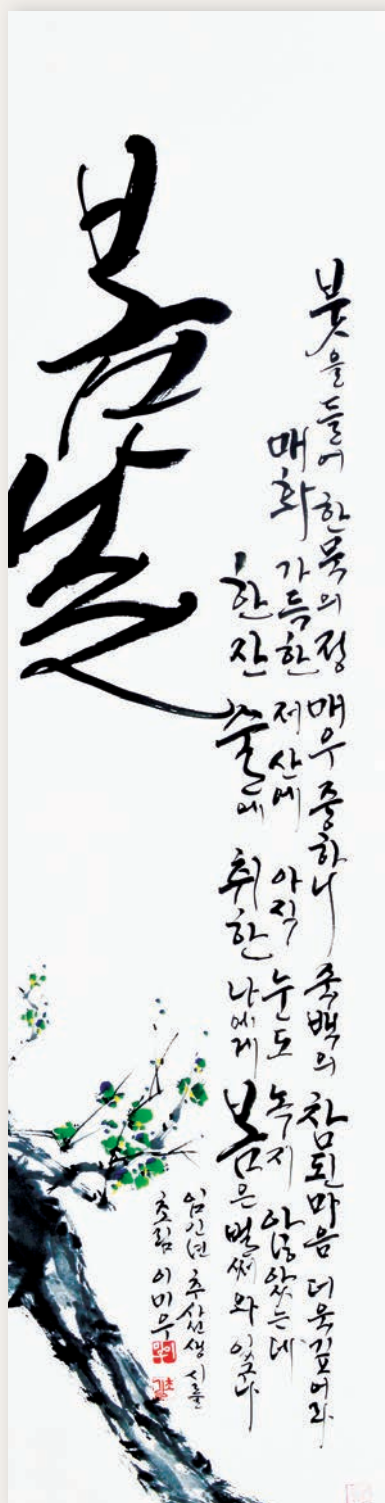 봄
붓을 들어 한묵의 정 매우 중하니 죽백의 참된 마음 더욱 깊어라
매화 가득한 저 산에 아직 눈도 녹지 않았는데
한잔 술에 취한 나에게 봄은 벌써 와 있구나
임인년 추산선생 시를
초림 이미우